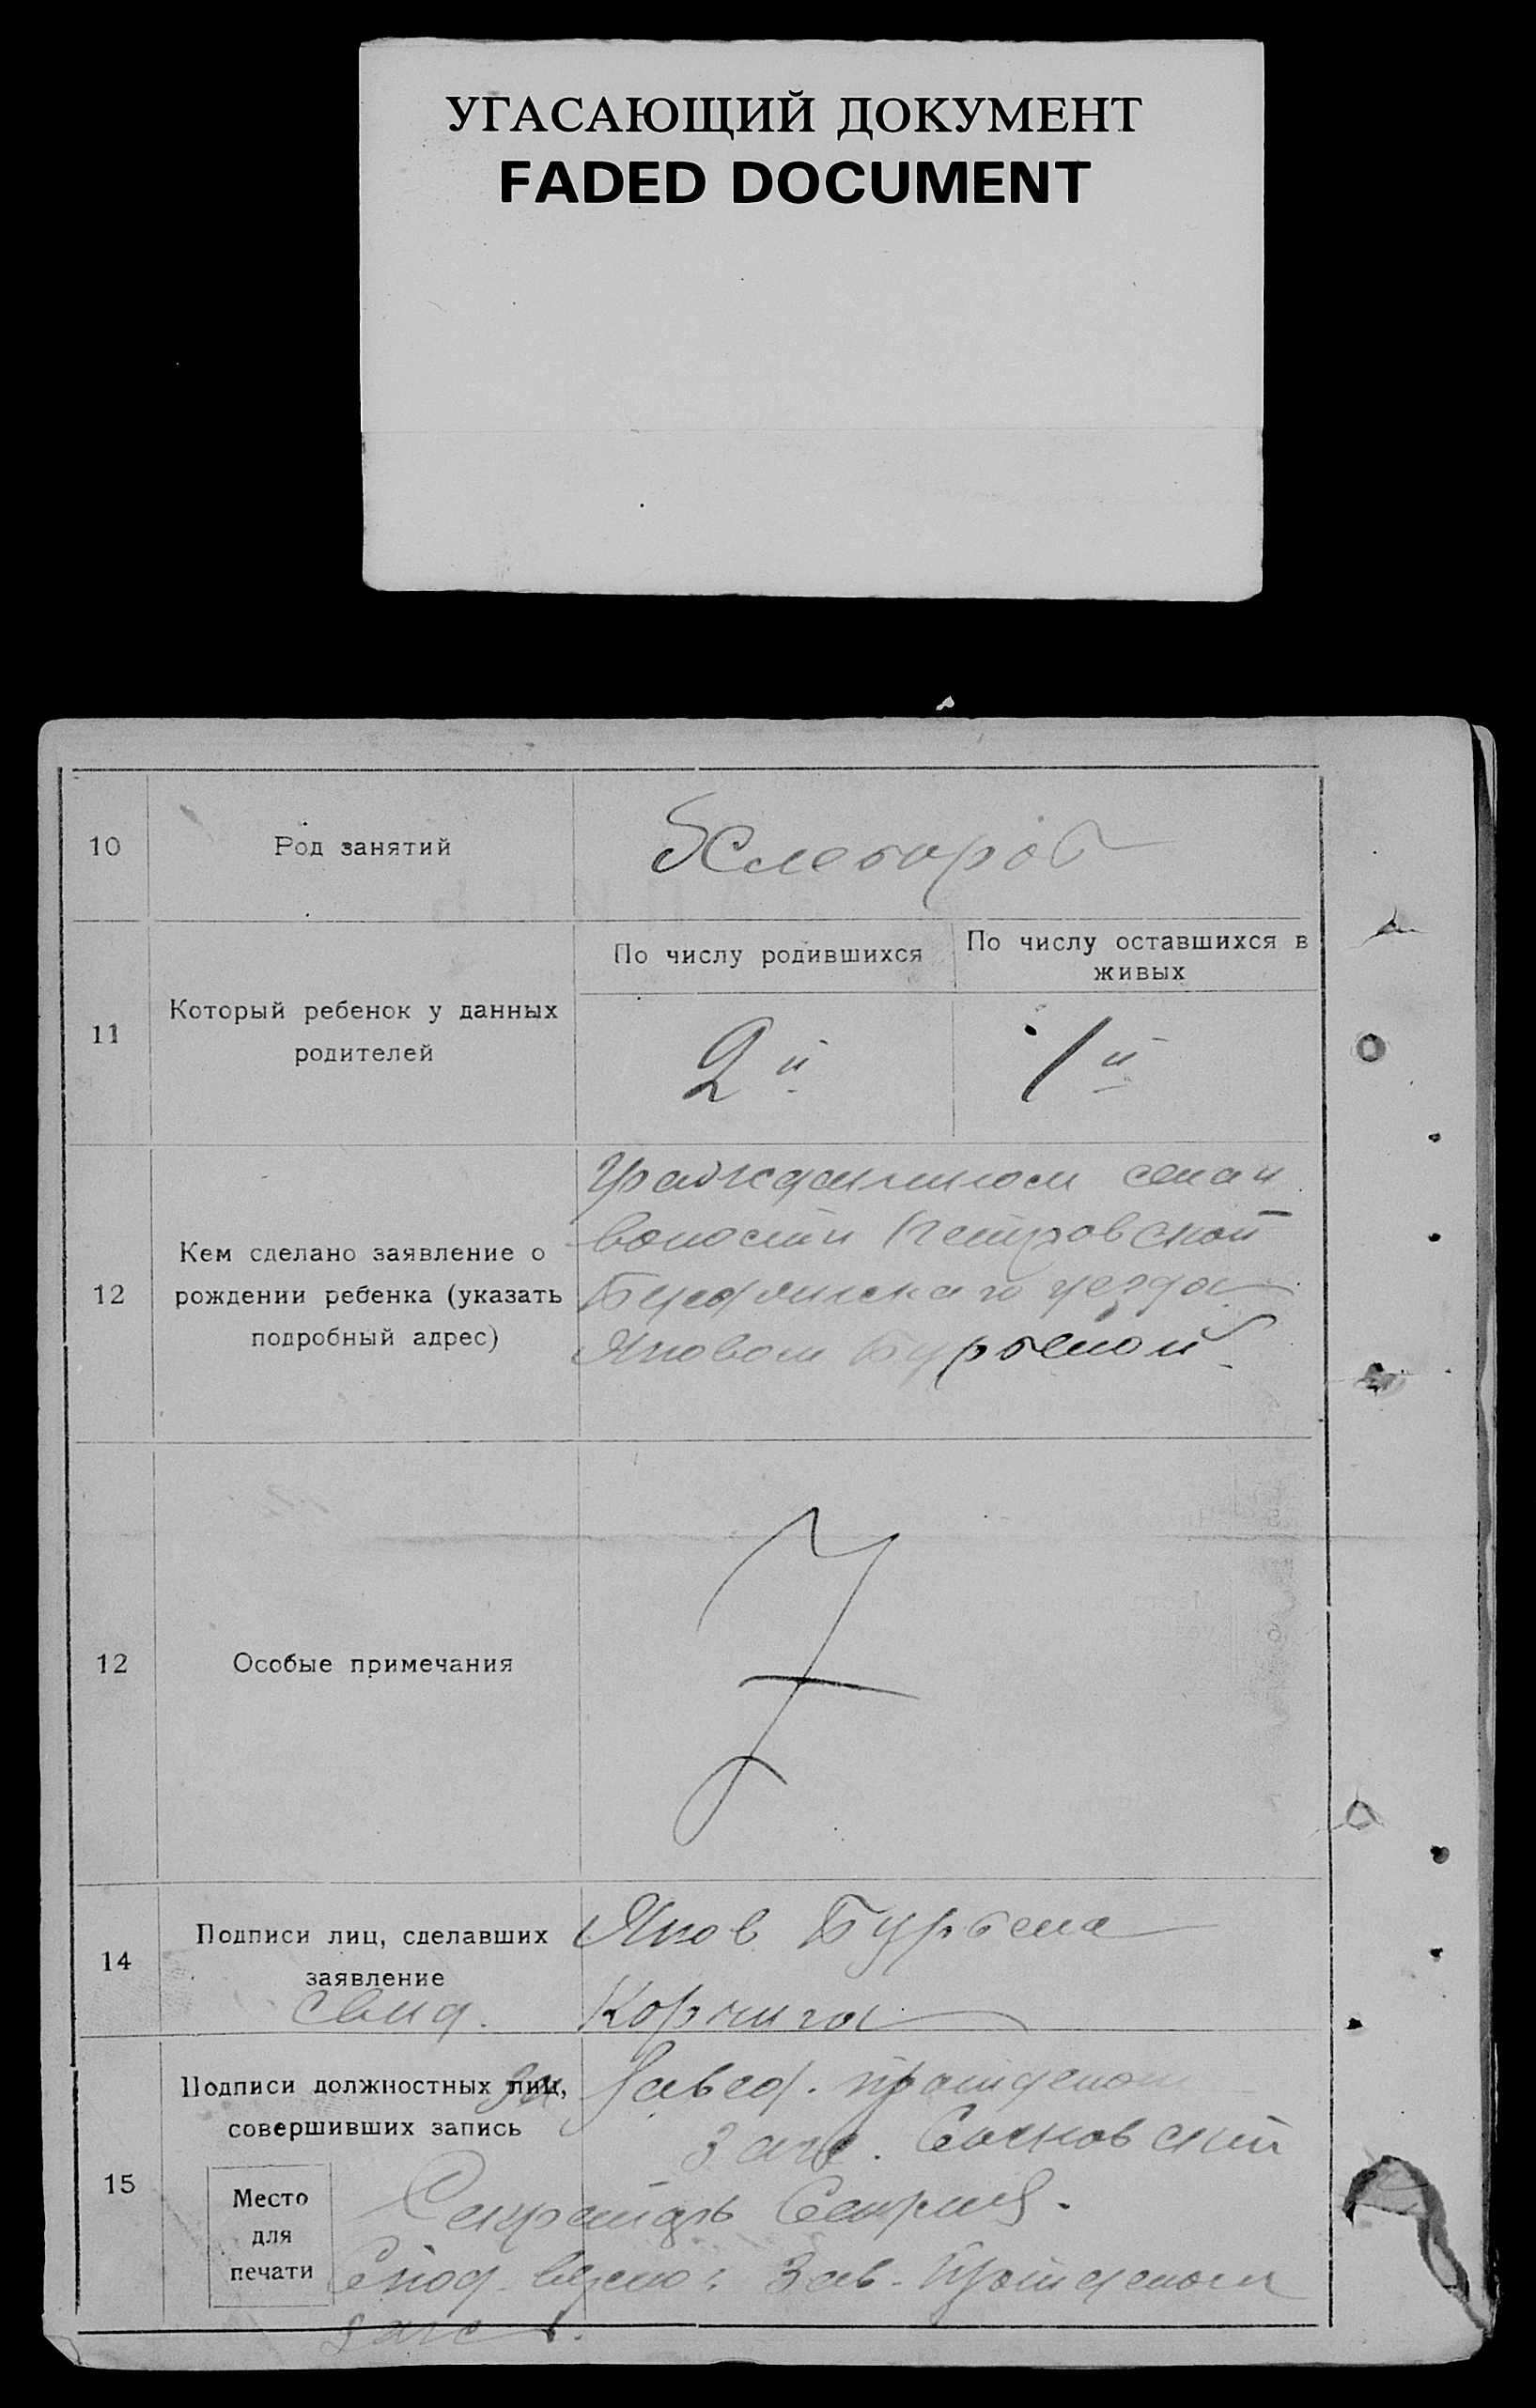 УГАСАЮЩИЙ ДОКУМЕНТ
FADED DOCUMENT
10
Род занятий
Хлебороб
11
Который ребенок у данных
родителей
По числу родившихся
По числу оставшихся в
живых
2й
1й
12
Кем сделано заявление о
рождении ребенка (указать
подробный адрес)
Гражданином села и
волости Петровской
уезда
Яковом Бурбелой
12
Особые примечания
14
Подписи лиц, сделавших
заявление
свид.
Яков Бурбела
15
Подписи должностных лиц,
совершивших запись
Место
для
печати
За Завед. подотделом
загс. Сосновский
Секретарь
верно: Зав. Подотделом
загс